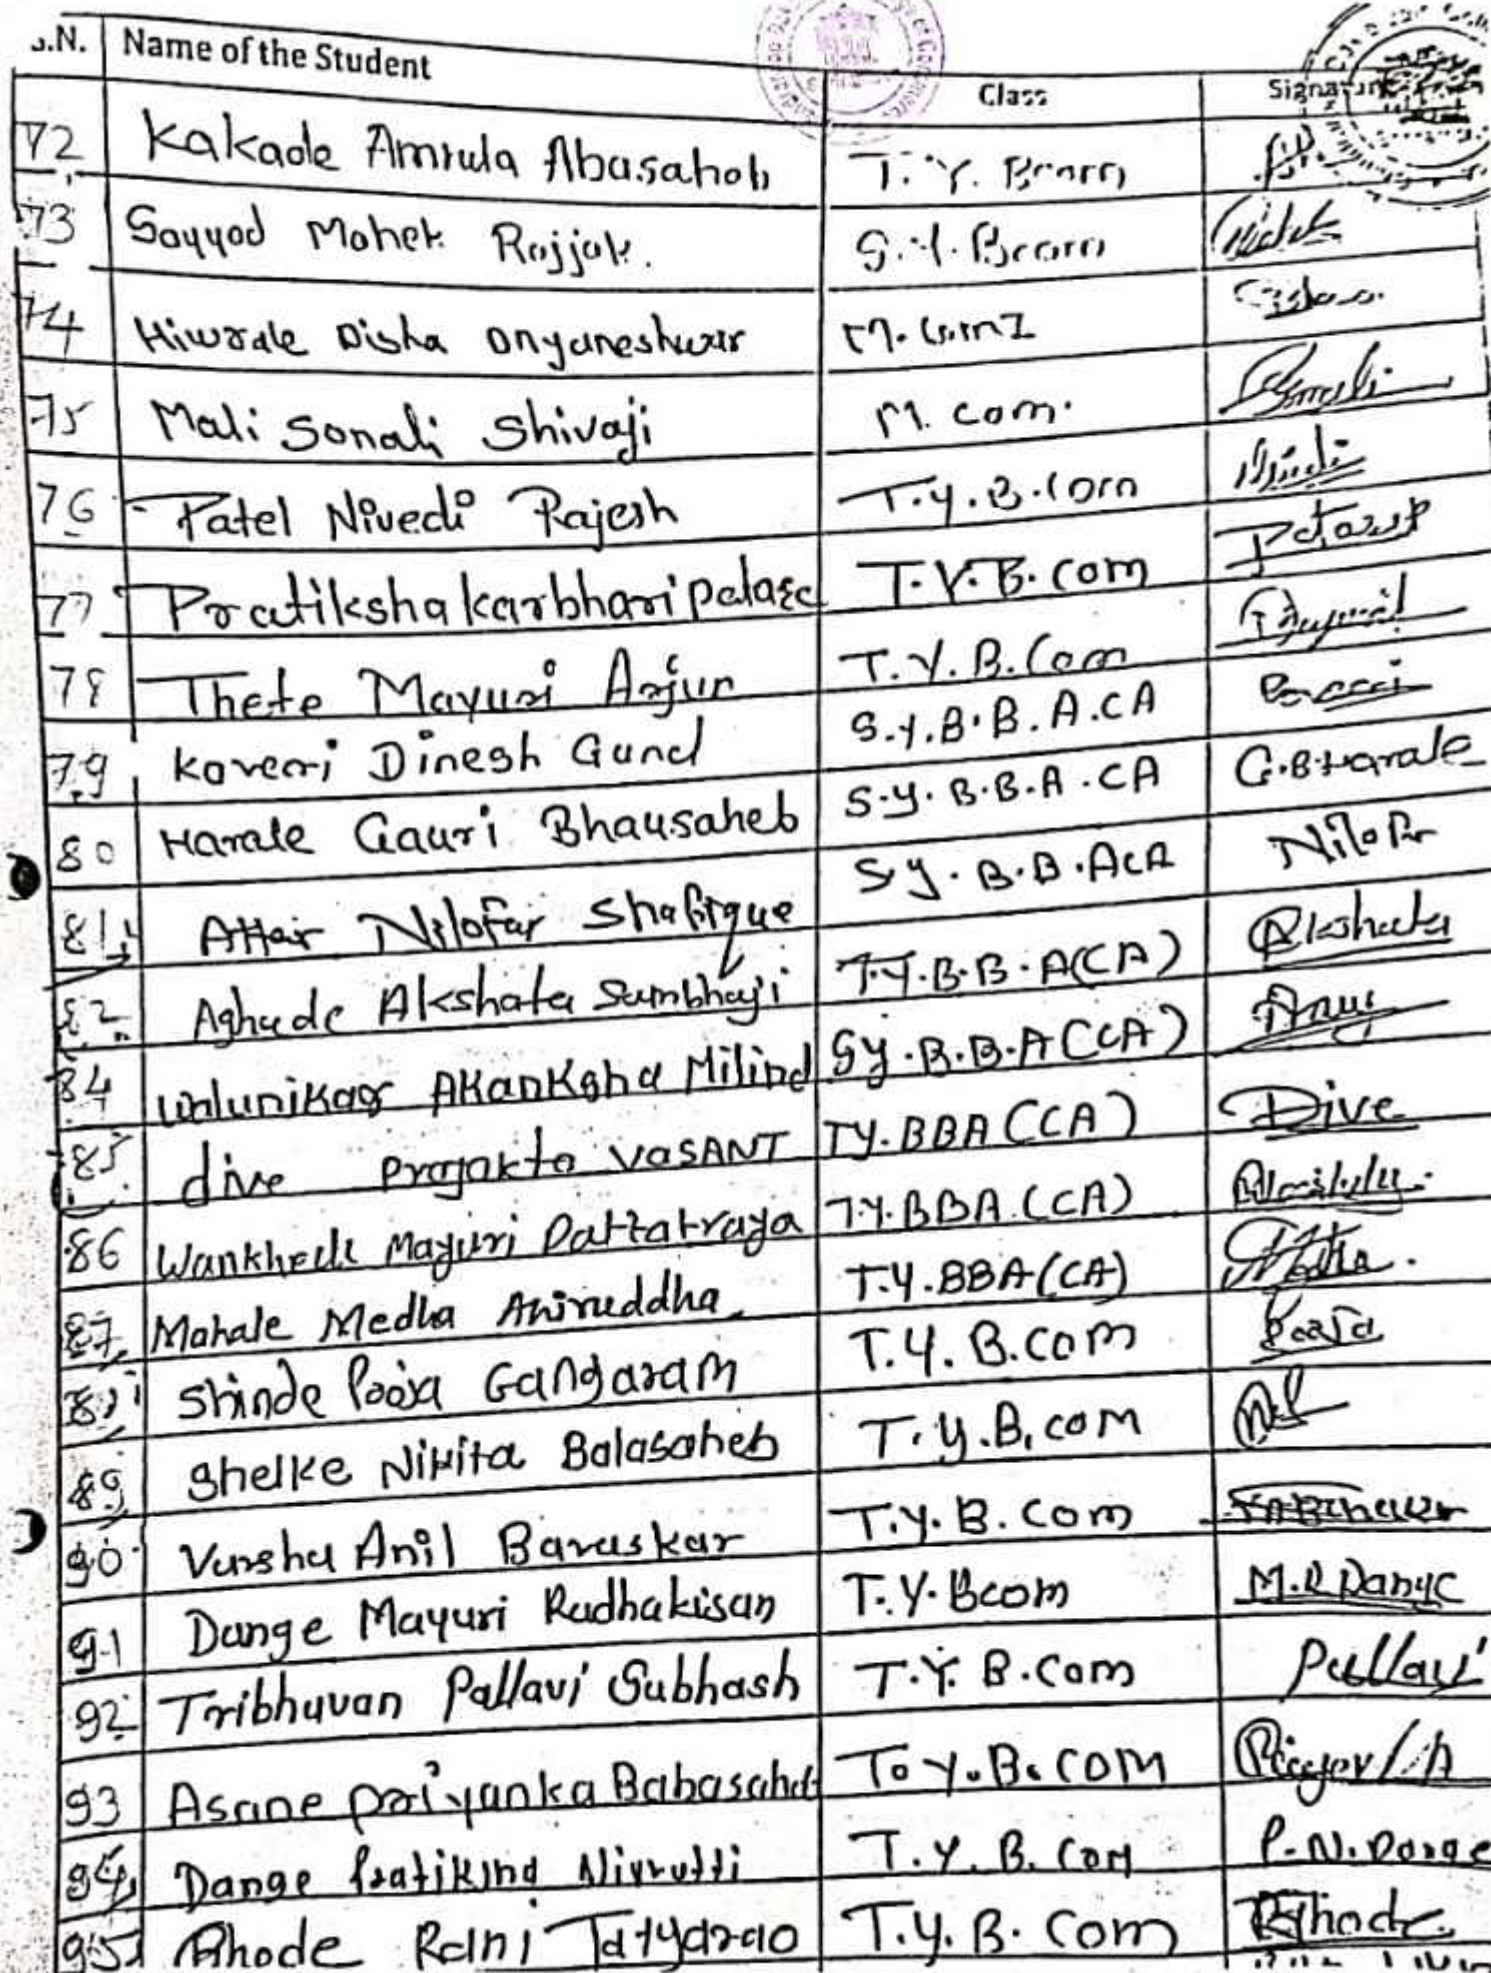 S.N. Name of the Student Class Signature
72 Kakade Amrula Abasaheb T.Y. Bcom
73 Sayyad Mohek Rajjak. S.Y. Bcom
74 Hiwrale Disha Dnyaneshwar M.Com I
75 Mali Sonali Shivaji M. com.
76 Patel Nivedi Rajesh T.y.B.Com
77 Pratiksha karbhari T.Y.B.com
78 Thete Mayuri Arjun T.Y.B.Com
79 Kaveri Dinesh Gund S.y.B.B.A.CA
80 Harale Gauri Bhausaheb S.y.B.B.A.CA G.B.Harale
81 Attar Nilofar Shafique SY.B.B.ACA Nilofar
82 Aghade Akshata Sambhaji T.Y.B.B.A(CA) Akshata
84 Walunikar Akanksha Milind SY.B.B.A(CA)
85 dive Prajakta VASANT TY.BBA(CA) Dive
86 Wankhede Mayuri Dattatraya T.Y.BBA(CA)
87 Mahale Medha Aniruddha T.Y.BBA(CA) Medha.
Shinde Pooja Gangaram T.Y.B.com Pooja
89 Shelke Nikita Balasaheb T.y.B.com
90 Varsha Anil Bavaskar T.y.B.com
91 Dange Mayuri Radhakisan T.Y.Bcom M.R Dange
92 Tribhuvan Pallavi Subhash T.Y. B.Com Pallavi
93 Asane Priyanka Babasaheb T.Y.B.COM
94 Dange Nivrutti T.Y.B.Com P.N.Dange
95 Rhode Rani Tatyarao T.y.B.Com